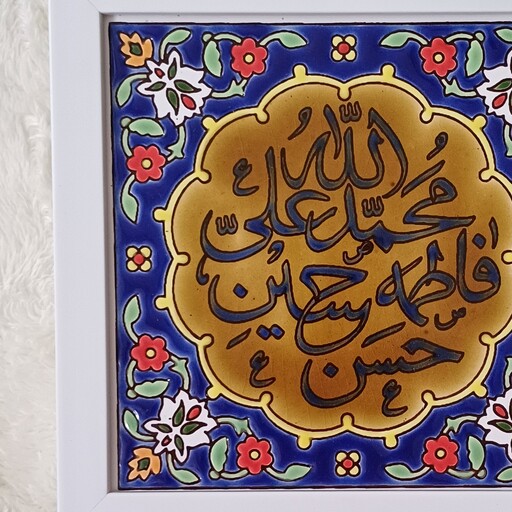 الله
محمد علی
فاطمة حسین
حسن